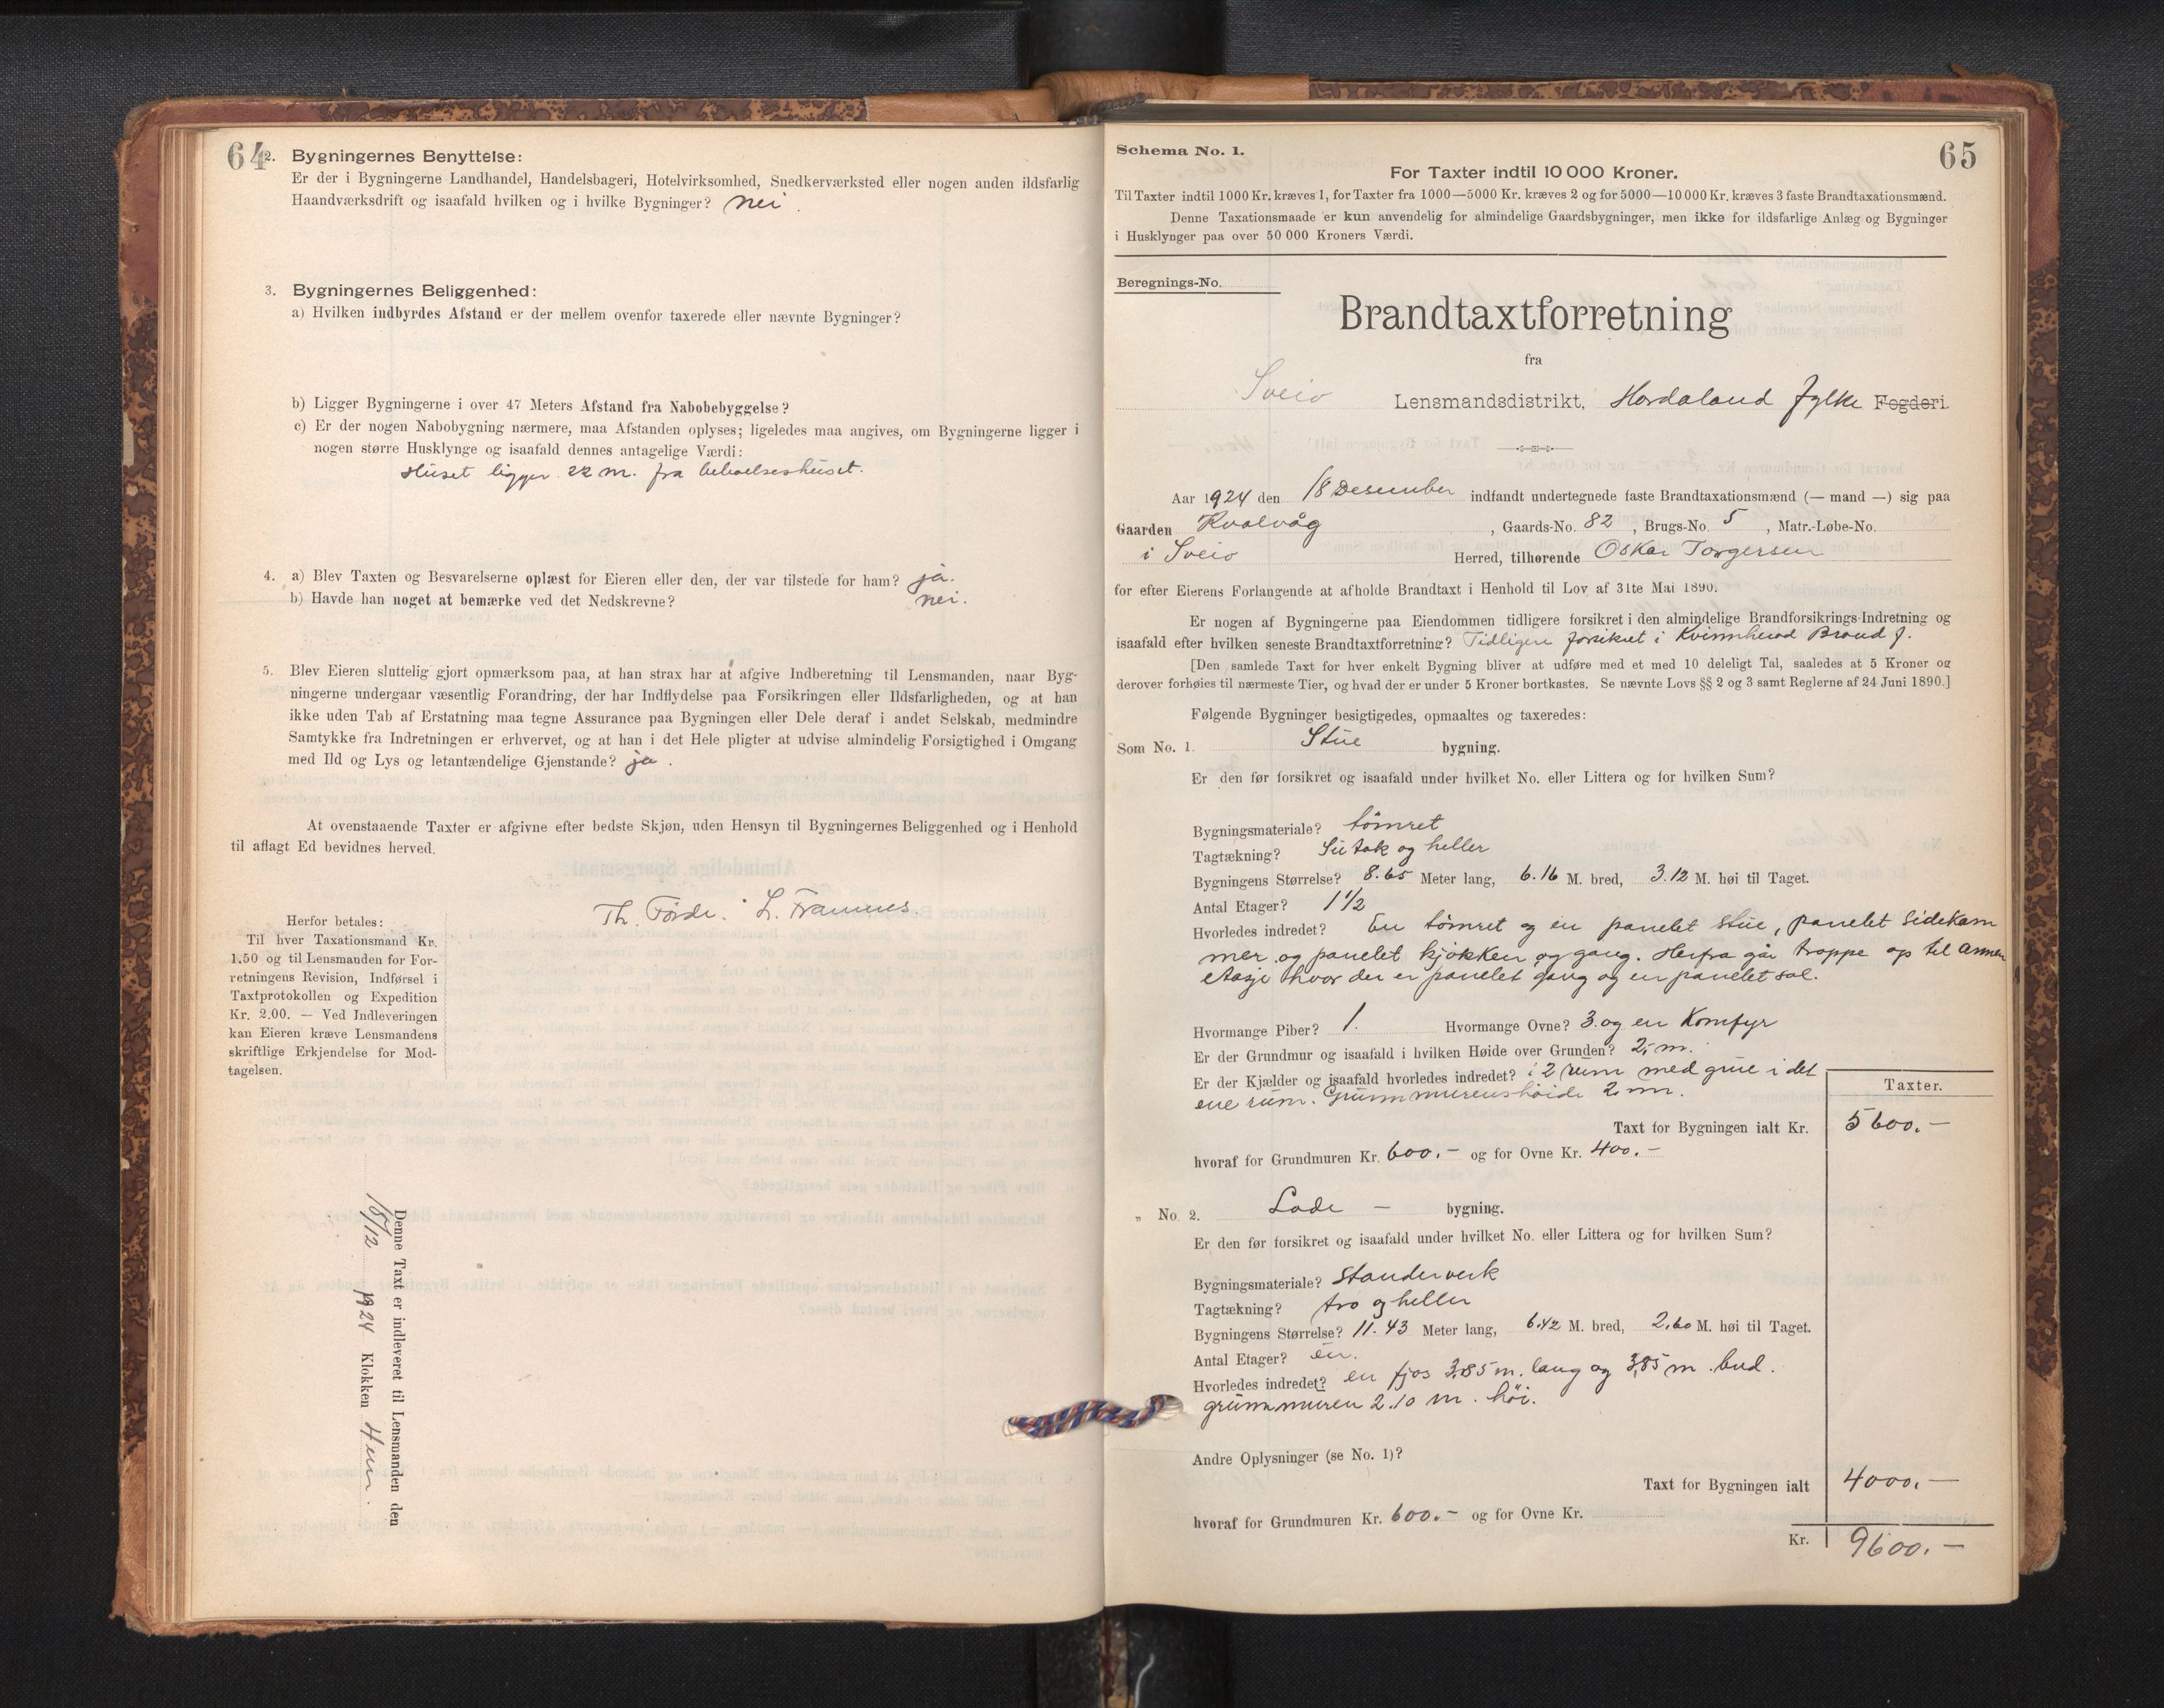 64
2. Bygningernes Benyttelse:
Er der i Bygningerne Landhandel, Handelsbageri, Hotelvirksomhed, Snedkerværksted eller nogen anden ildsfarlig
Haandværksdrift og isaafald hvilken og i hvilke Bygninger? nei.
3. Bygningernes Beliggenhed:
a) Hvilken indbyrdes Afstand er der mellem ovenfor taxerede eller nævnte Bygninger?
b) Ligger Bygningerne i over 47 Meters Afstand fra Nabobebyggelse?
c) Er der nogen Nabobygning nærmere, maa Afstanden oplyses; ligeledes maa angives, om Bygningerne ligger i
nogen større Husklynge og isaafald dennes antagelige Værdi:
Huset ligger 22 m. fra behoelseshuset.
4. a) Blev Taxten og Besvarelserne oplæst for Eieren eller den, der var tilstede for ham? ja.
b) Havde han noget at bemærke ved det Nedskrevne? nei.
5. Blev Eieren sluttelig gjort opmærksom paa, at han strax har at afgive Indberetning til Lensmanden, naar Byg-
ningerne undergaar væsentlig Forandring, der har Indflydelse paa Forsikringen eller Ildsfarligheden, og at han
ikke uden Tab af Erstatning maa tegne Assurance paa Bygningen eller Dele deraf i andet Selskab, medmindre
Samtykke fra Indretningen er erhvervet, og at han i det Hele pligter at udvise almindelig Forsigtighed i Omgang
med Ild og Lys og letantændelige Gjenstande? ja.
At ovenstaaende Taxter er afgivne efter bedste Skjøn, uden Hensyn til Bygningernes Beliggenhed og i Henhold
til aflagt Ed bevidnes herved.
Th. Førde. L. Framnes
Herfor betales:
Til hver Taxationsmand Kr.
1.50 og til Lensmanden for For-
retningens Revision, Indførsel i
Taxtprotokollen og Expedition
Kr. 2.00. — Ved Indleveringen
kan Eieren kræve Lensmandens
skriftlige Erkjendelse for Mod-
tagelsen.
Denne Taxt er indleveret til Lensmanden den
18/12 1924 Klokken 4 em.
65
Schema No. 1.
For Taxter indtil 10 000 Kroner.
Til Taxter indtil 1000 Kr. kræves 1, for Taxter fra 1000—5000 Kr. kræves 2 og for 5000—10 000 Kr. kræves 3 faste Brandtaxationsmænd.
Denne Taxationsmaade er kun anvendelig for almindelige Gaardsbygninger, men ikke for ildsfarlige Anlæg og Bygninger
i Husklynger paa over 50 000 Kroners Værdi.
Beregnings-No.
Brandtaxtforretning
fra
Sveio Lensmandsdistrikt, Hordaland fylke Fogderi.
Aar 1924 den 18 Desember indfandt undertegnede faste Brandtaxationsmænd (— mand —) sig paa
Gaarden Kvalvåg, Gaards-No. 82, Brugs-No. 5, Matr.-Løbe-No.
i Sveio Herred, tilhørende Oskar Torgersen
for efter Eierens Forlangende at afholde Brandtaxt i Henhold til Lov af 31te Mai 1890.
Er nogen af Bygningerne paa Eiendommen tidligere forsikret i den almindelige Brandforsikrings-Indretning og
isaafald efter hvilken seneste Brandtaxtforretning? Tidligere forsikret i Kvinnherad Brand f.
[Den samlede Taxt for hver enkelt Bygning bliver at udføre med et med 10 deleligt Tal, saaledes at 5 Kroner og
derover forhøies til nærmeste Tier, og hvad der er under 5 Kroner bortkastes. Se nævnte Lovs §§ 2 og 3 samt Reglerne af 24 Juni 1890.]
Følgende Bygninger besigtigedes, opmaaltes og taxeredes:
Som No. 1. Stue bygning.
Er den før forsikret og isaafald under hvilket No. eller Littera og for hvilken Sum?
Bygningsmateriale? tømret
Tagtækning? Sutak og heller
Bygningens Størrelse? 8.65 Meter lang, 6.16 M. bred, 3.12 M. høi til Taget.
Antal Etager? 1 1/2
Hvorledes indredet? En tømret og en panelet stue, panelet sidekam
mer og panelet kjøkken og gang. Herfra går trappe op til annen
etasje hvor der er panelet gang og en panelet sal.
Hvormange Piber? 1. Hvormange Ovne? 3 og en Komfyr
Er der Grundmur og isaafald i hvilken Høide over Grunden? 2,- m.
Er der Kjælder og isaafald hvorledes indredet? i 2 rum med grue i det
ene rum. Grunnmurens høide 2 m.
Taxter.
Taxt for Bygningen ialt Kr. 5600.-
hvoraf for Grundmuren Kr. 600.- og for Ovne Kr. 400.-
„ No. 2. Lade - bygning.
Er den før forsikret og isaafald under hvilket No. eller Littera og for hvilken Sum?
Bygningsmateriale? standerverk
Tagtækning? tro og heller
Bygningens Størrelse? 11.43 Meter lang, 6.42 M. bred, 2.60 M. høi til Taget.
Antal Etager? en.
Hvorledes indredet? en fjos 3.85 m. lang og 3,85 m. bred.
grunnmuren 2.10 m. høi.
Andre Oplysninger (se No. 1)?
Taxt for Bygningen ialt 4000.-
hvoraf for Grundmuren Kr. 600.- og for Ovne Kr.
Kr. 9600.-